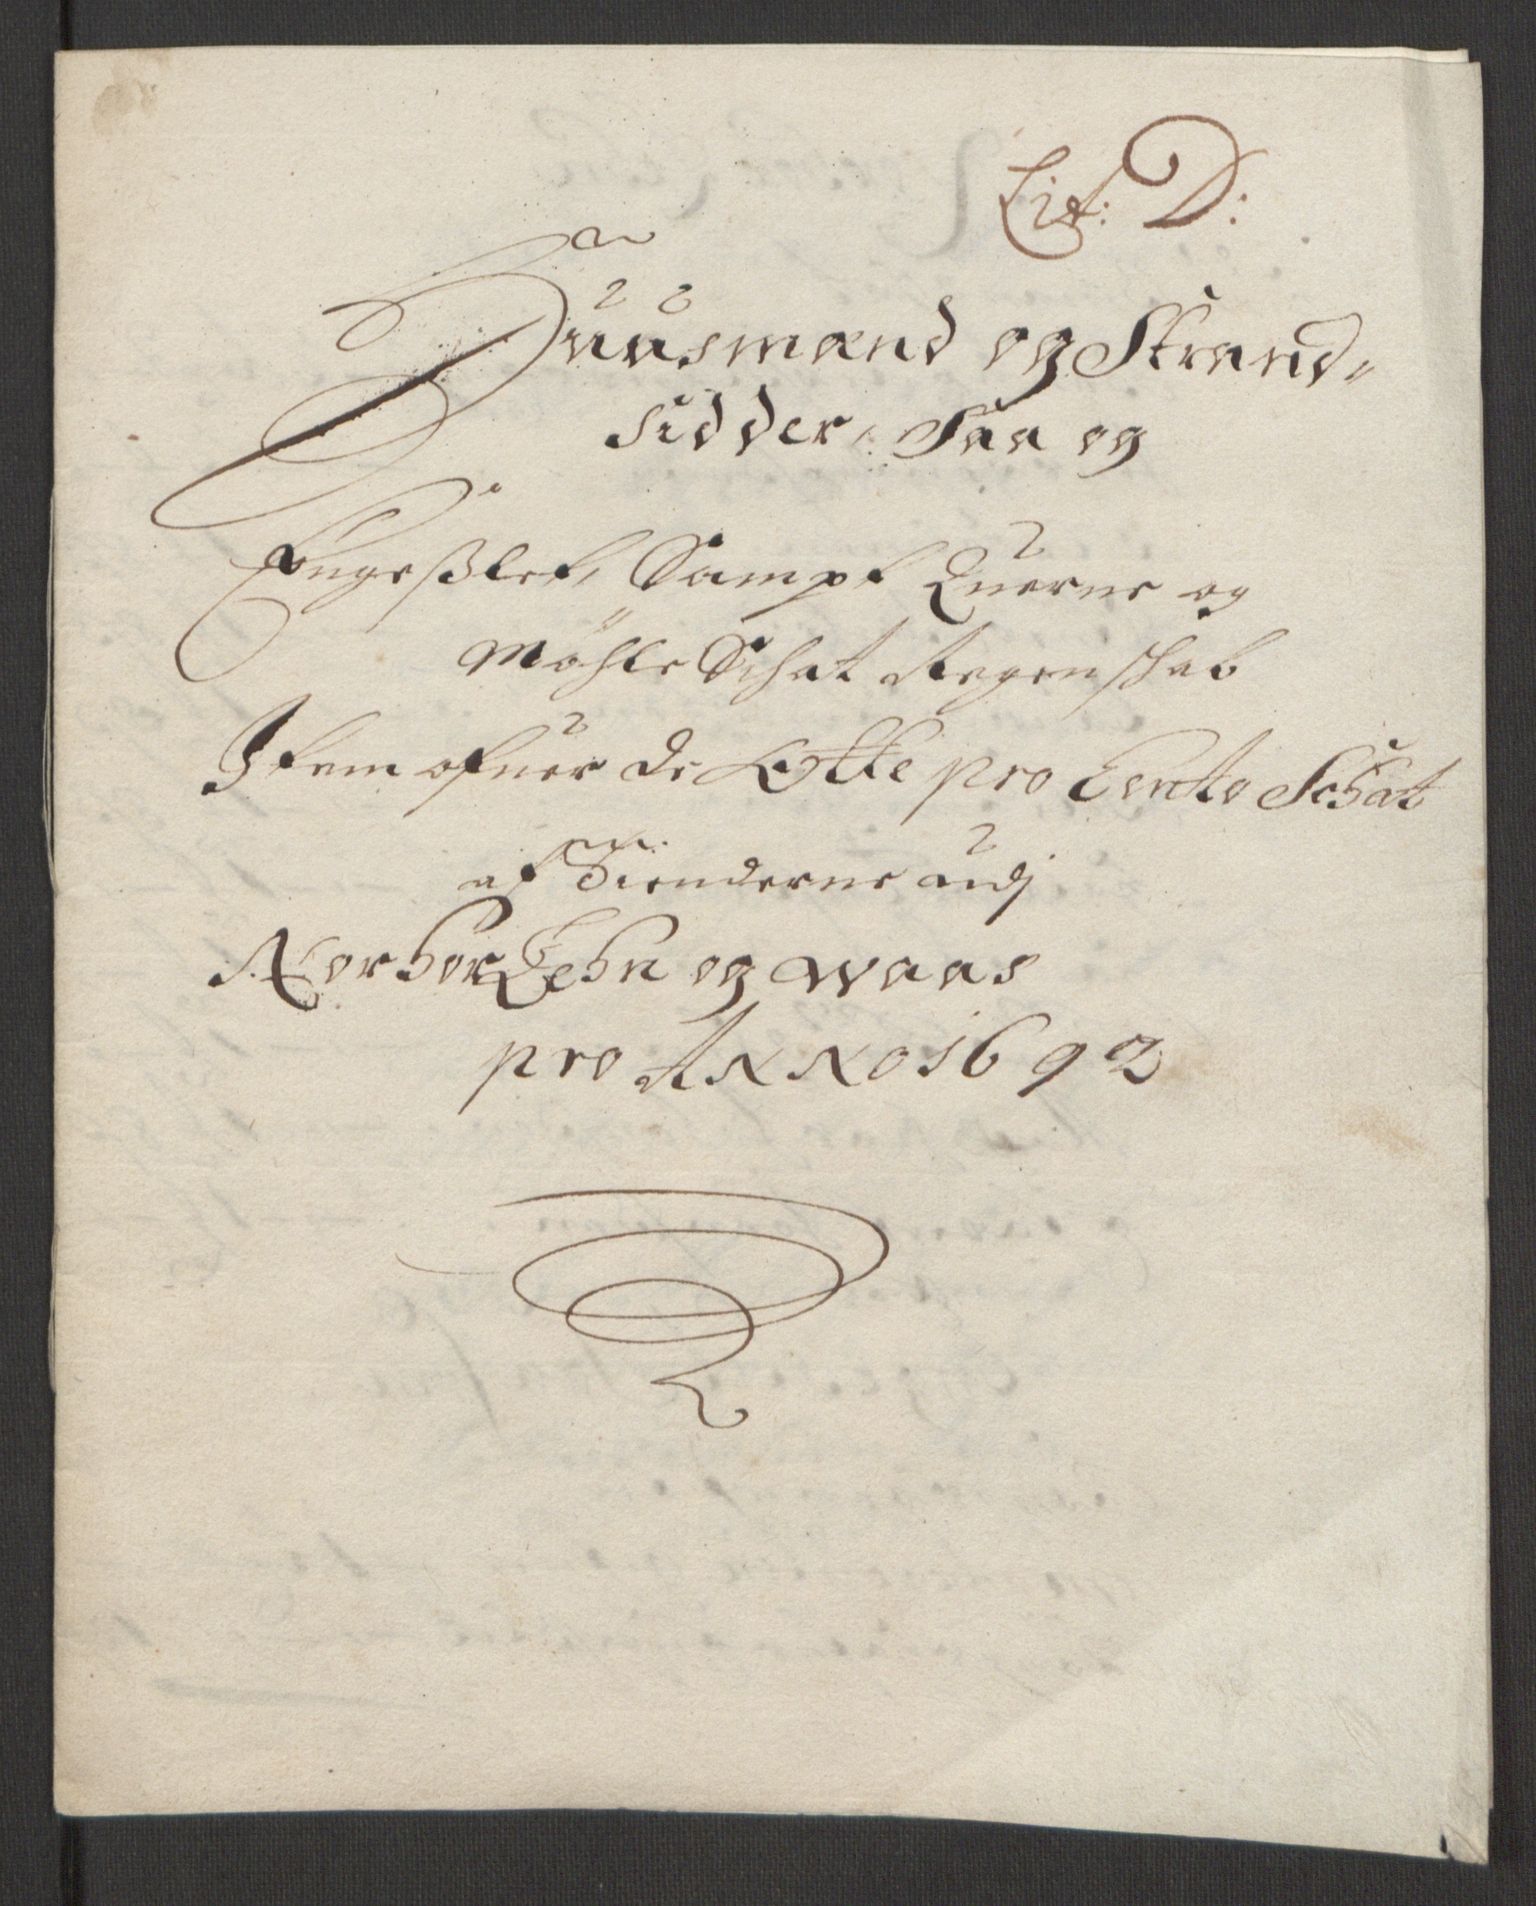 Lit: D:
Huusmænd og Strand-
sidder, Saa og
Engesslet, Sampt Querne og
Möhle Schat Regenschab
Item ofuer de Otte pro Cento Schat
af Tienderne udj
Norhor Lehn og Waas
pro ANNO 1692